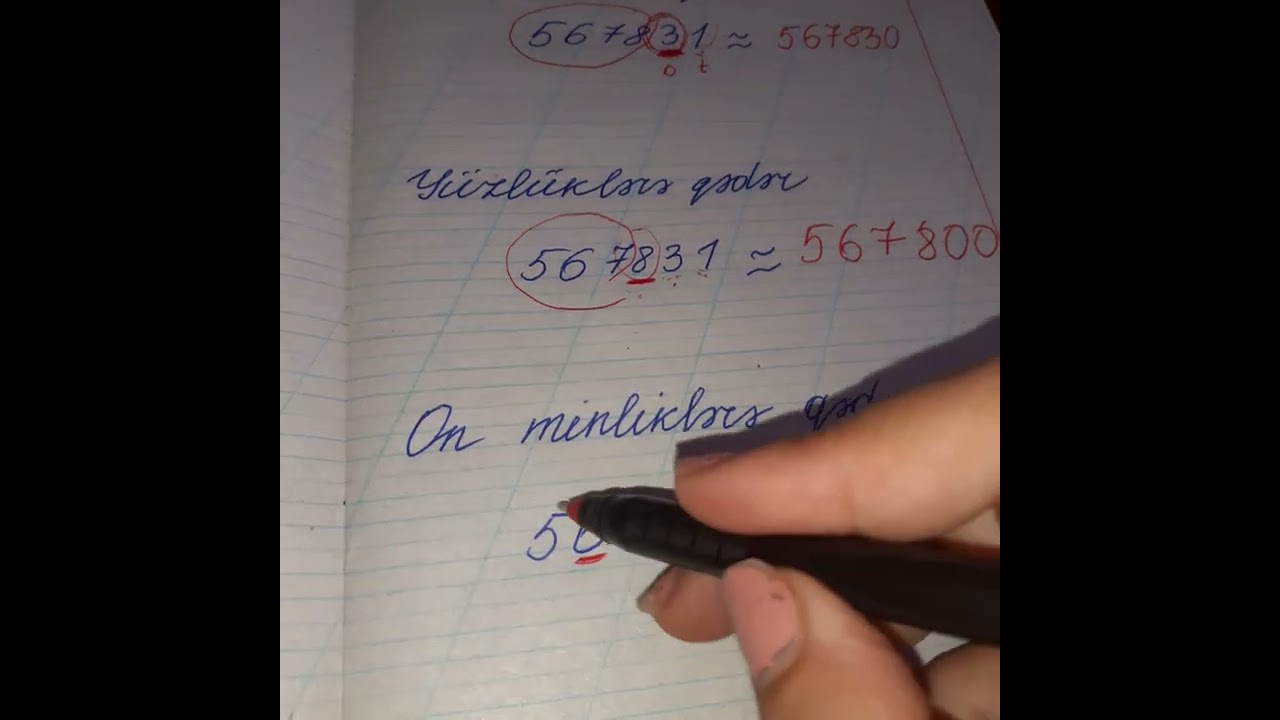 567831 ≈ 567830
o t
Yüzlüklərə qədər
567831 ≈ 567800
On minliklərə qəd
56